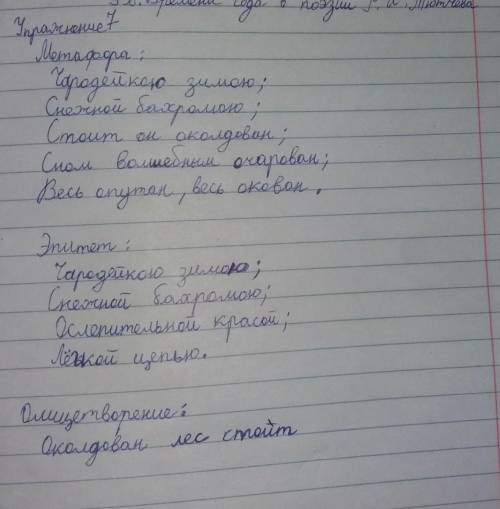 Времена года в поэзии Ф. И. Тютчева
Упражнение 7
Метафора:
Чародейкою зимою;
Снежной бахромою;
Стоит он околдован;
Сном волшебным очарован;
Весь опутан, весь окован.
Эпитет:
Чародейкою зимою;
Снежной бахромою;
Ослепительной красой;
Лёгкой цепью.
Олицетворение:
Околдован лес стоит